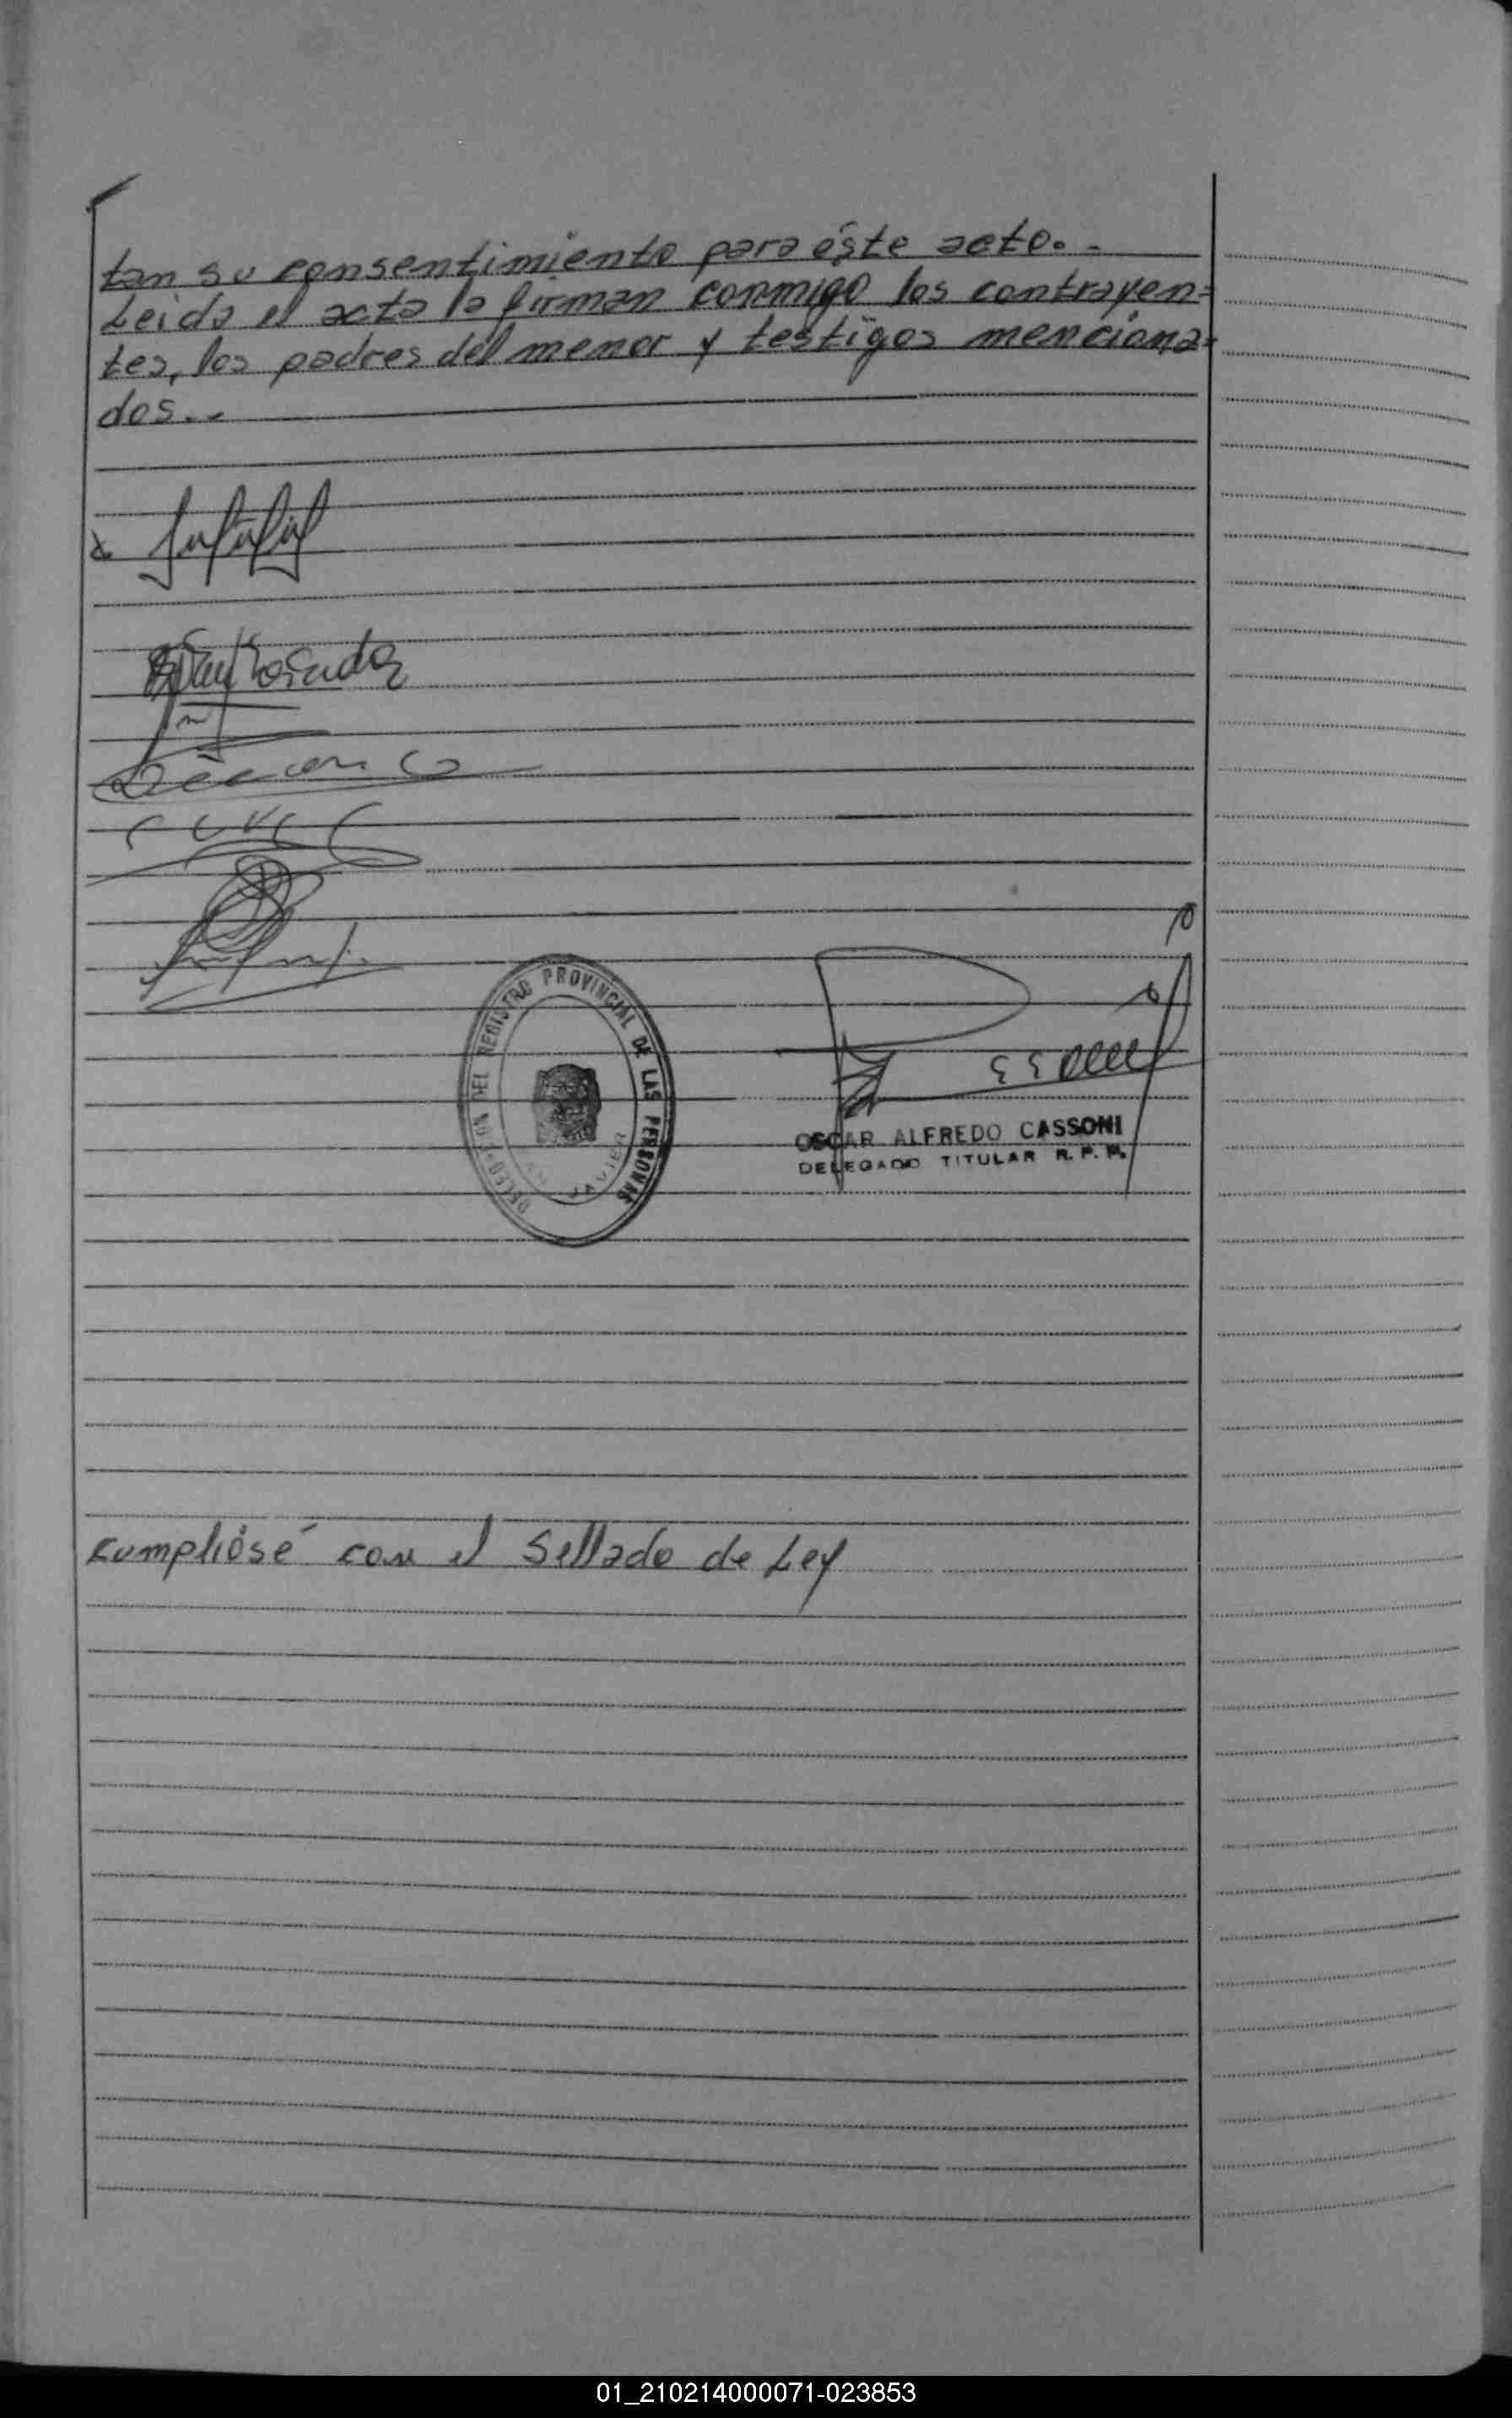 tan su consentimiento para éste acto.-
Leida el acta la firman conmigo los contrayen=
tes, los padres del menor y testigos menciona=
dos.-
DEL REGISTRO PROVINCIAL DE LAS PERSONAS
JAVIER
OSCAR ALFREDO CASSONI
DELEGADO TITULAR R. P. P.
cumpliósé con el Sellado de Ley
01_210214000071-023853